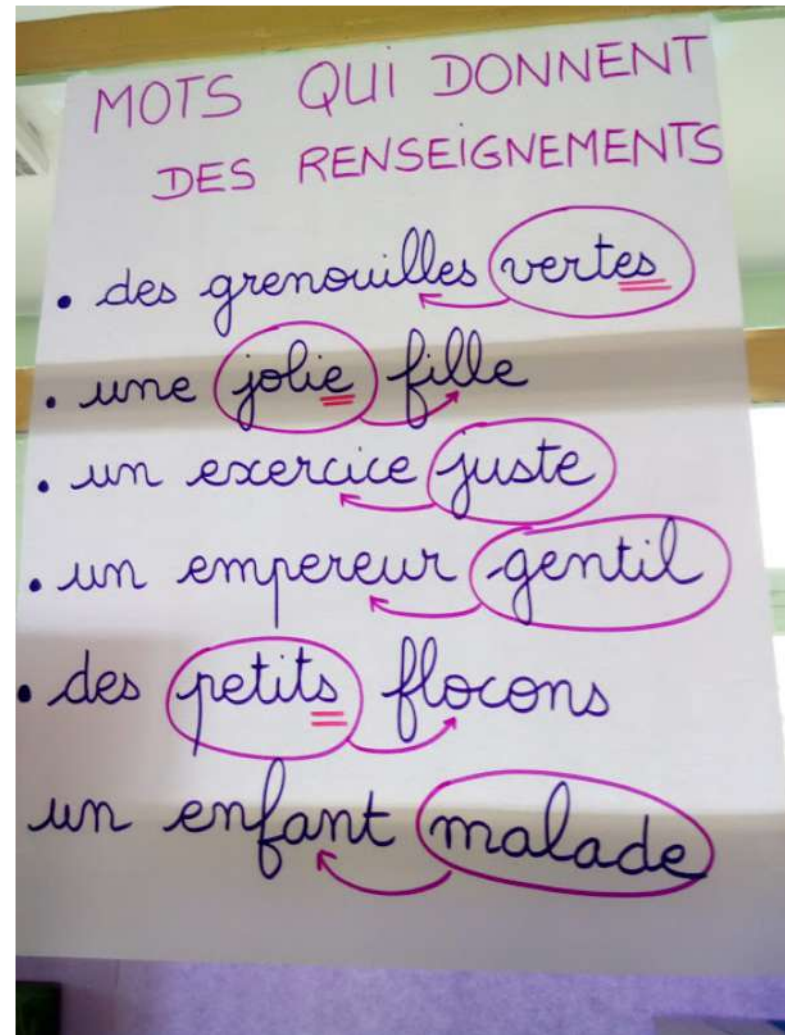 MOTS QUI DONNENT
DES RENSEIGNEMENTS
• des grenouilles vertes
• une jolie fille
• un exercice juste
• un empereur gentil
• des petits flocons
un enfant malade